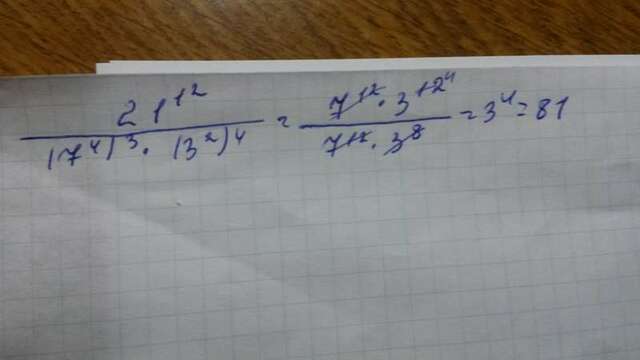 21¹² / (7⁴)³ · (3²)⁴ = 7¹² · 3¹²⁴ / 7¹² · 3⁸ = 3⁴ = 81